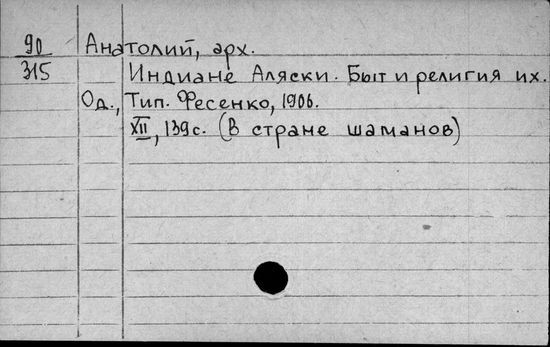 90 Анатолий, арх.
315 Индиане Аляски. Быт и религия их.
Од., Тип. Фесенко, 1906.
XII, 139с. (В стране шаманов)